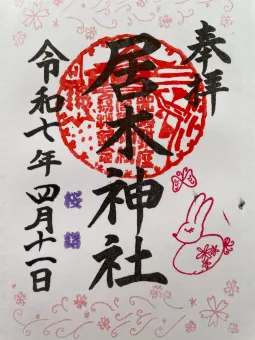 奉拝
居木神社
令和七年四月十一日
桜詣